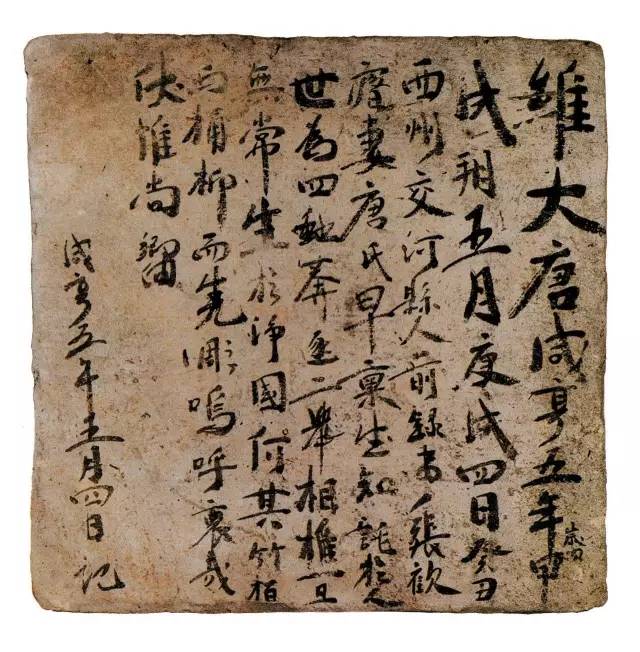 維大唐咸亨五年歲甲
戌朔五月庚戌四日癸丑
西州交河縣人前錄事張歡
妻唐氏早稟生知託於人
世為四 二舉相摧一旦
無常生於淨國何其竹柏
桶柳而先彫嗚呼哀哉
伏惟尚饗
咸亨五年五月四日記